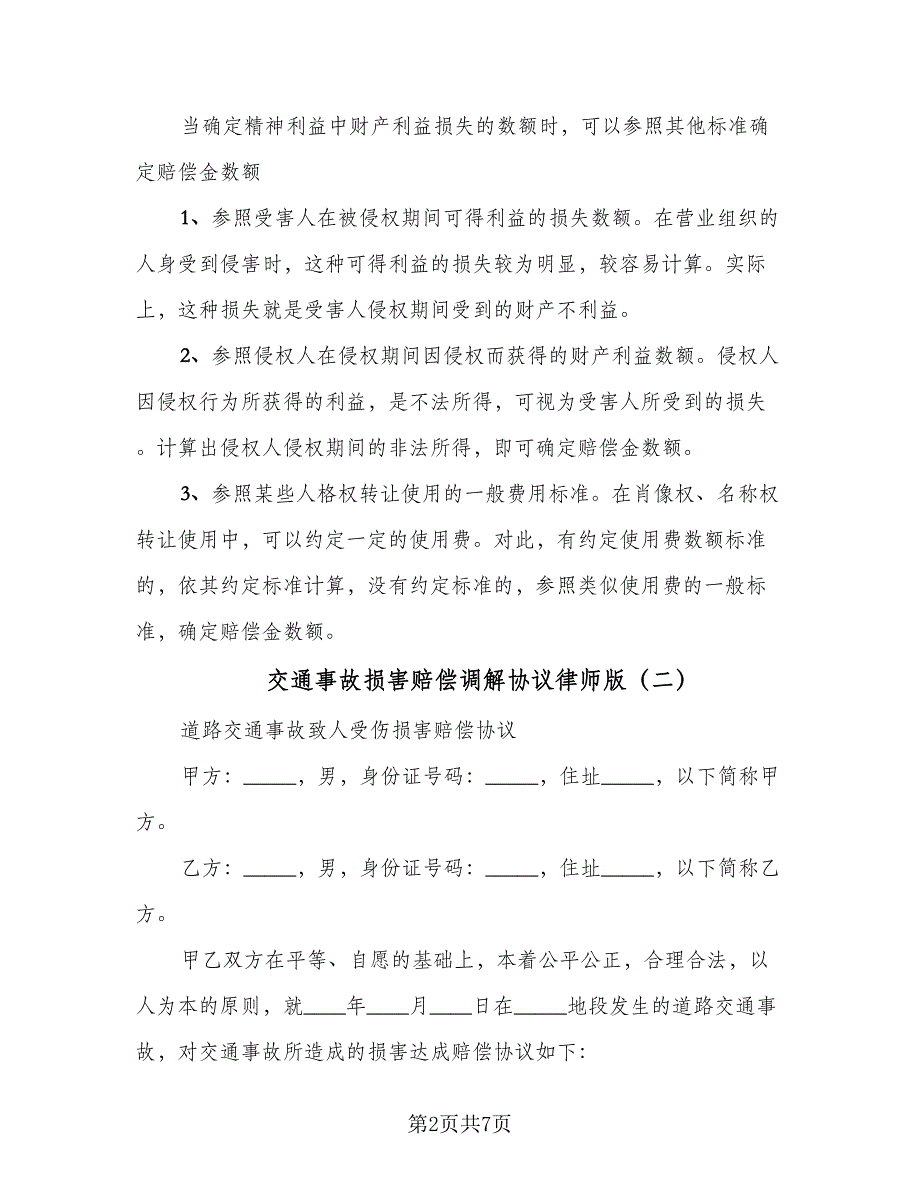 当确定精神利益中财产利益损失的数额时，可以参照其他标准确
定赔偿金数额
1、参照受害人在被侵权期间可得利益的损失数额。在营业组织的
人身受到侵害时，这种可得利益的损失较为明显，较容易计算。实际
上，这种损失就是受害人侵权期间受到的财产不利益。
2、参照侵权人在侵权期间因侵权而获得的财产利益数额。侵权人
因侵权行为所获得的利益，是不法所得，可视为受害人所受到的损失
。计算出侵权人侵权期间的非法所得，即可确定赔偿金数额。
3、参照某些人格权转让使用的一般费用标准。在肖像权、名称权
转让使用中，可以约定一定的使用费。对此，有约定使用费数额标准
的，依其约定标准计算，没有约定标准的，参照类似使用费的一般标
准，确定赔偿金数额。
交通事故损害赔偿调解协议律师版（二）
道路交通事故致人受伤损害赔偿协议
甲方：_____，男，身份证号码：_____，住址_____，以下简称甲
方。
乙方：_____，男，身份证号码：_____，住址_____，以下简称乙
方。
甲乙双方在平等、自愿的基础上，本着公平公正，合理合法，以
人为本的原则，就____年____月____日在_____地段发生的道路交通事
故，对交通事故所造成的损害达成赔偿协议如下：
第2页共7页